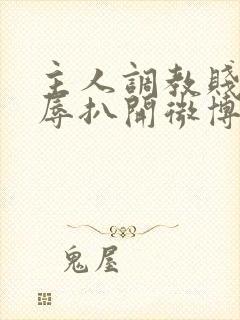 主人調教賤
辱扒開微博
鬼屋